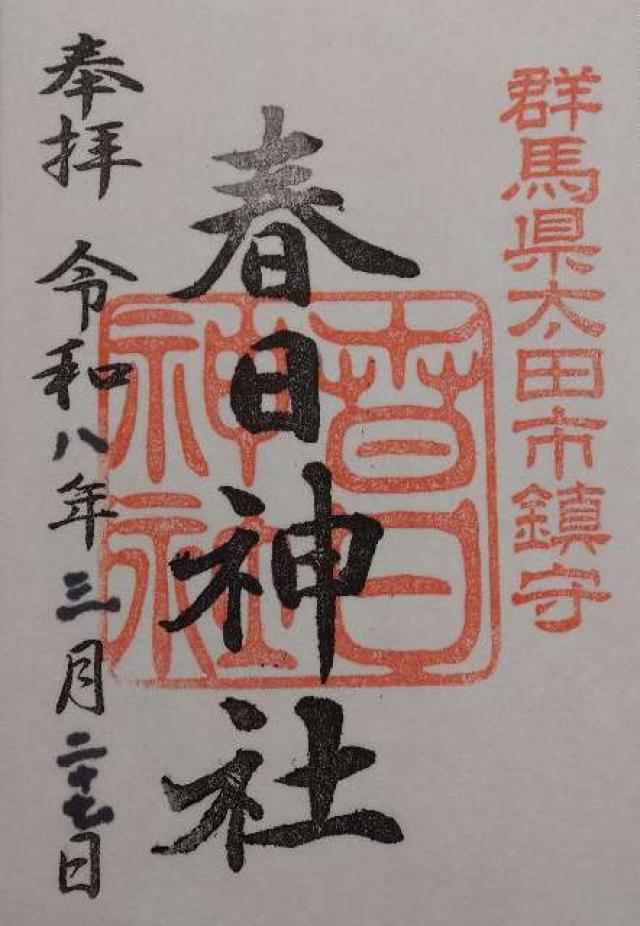 群馬県太田市鎮守
春日神社
春日
神社
奉拝 令和八年三月二十七日